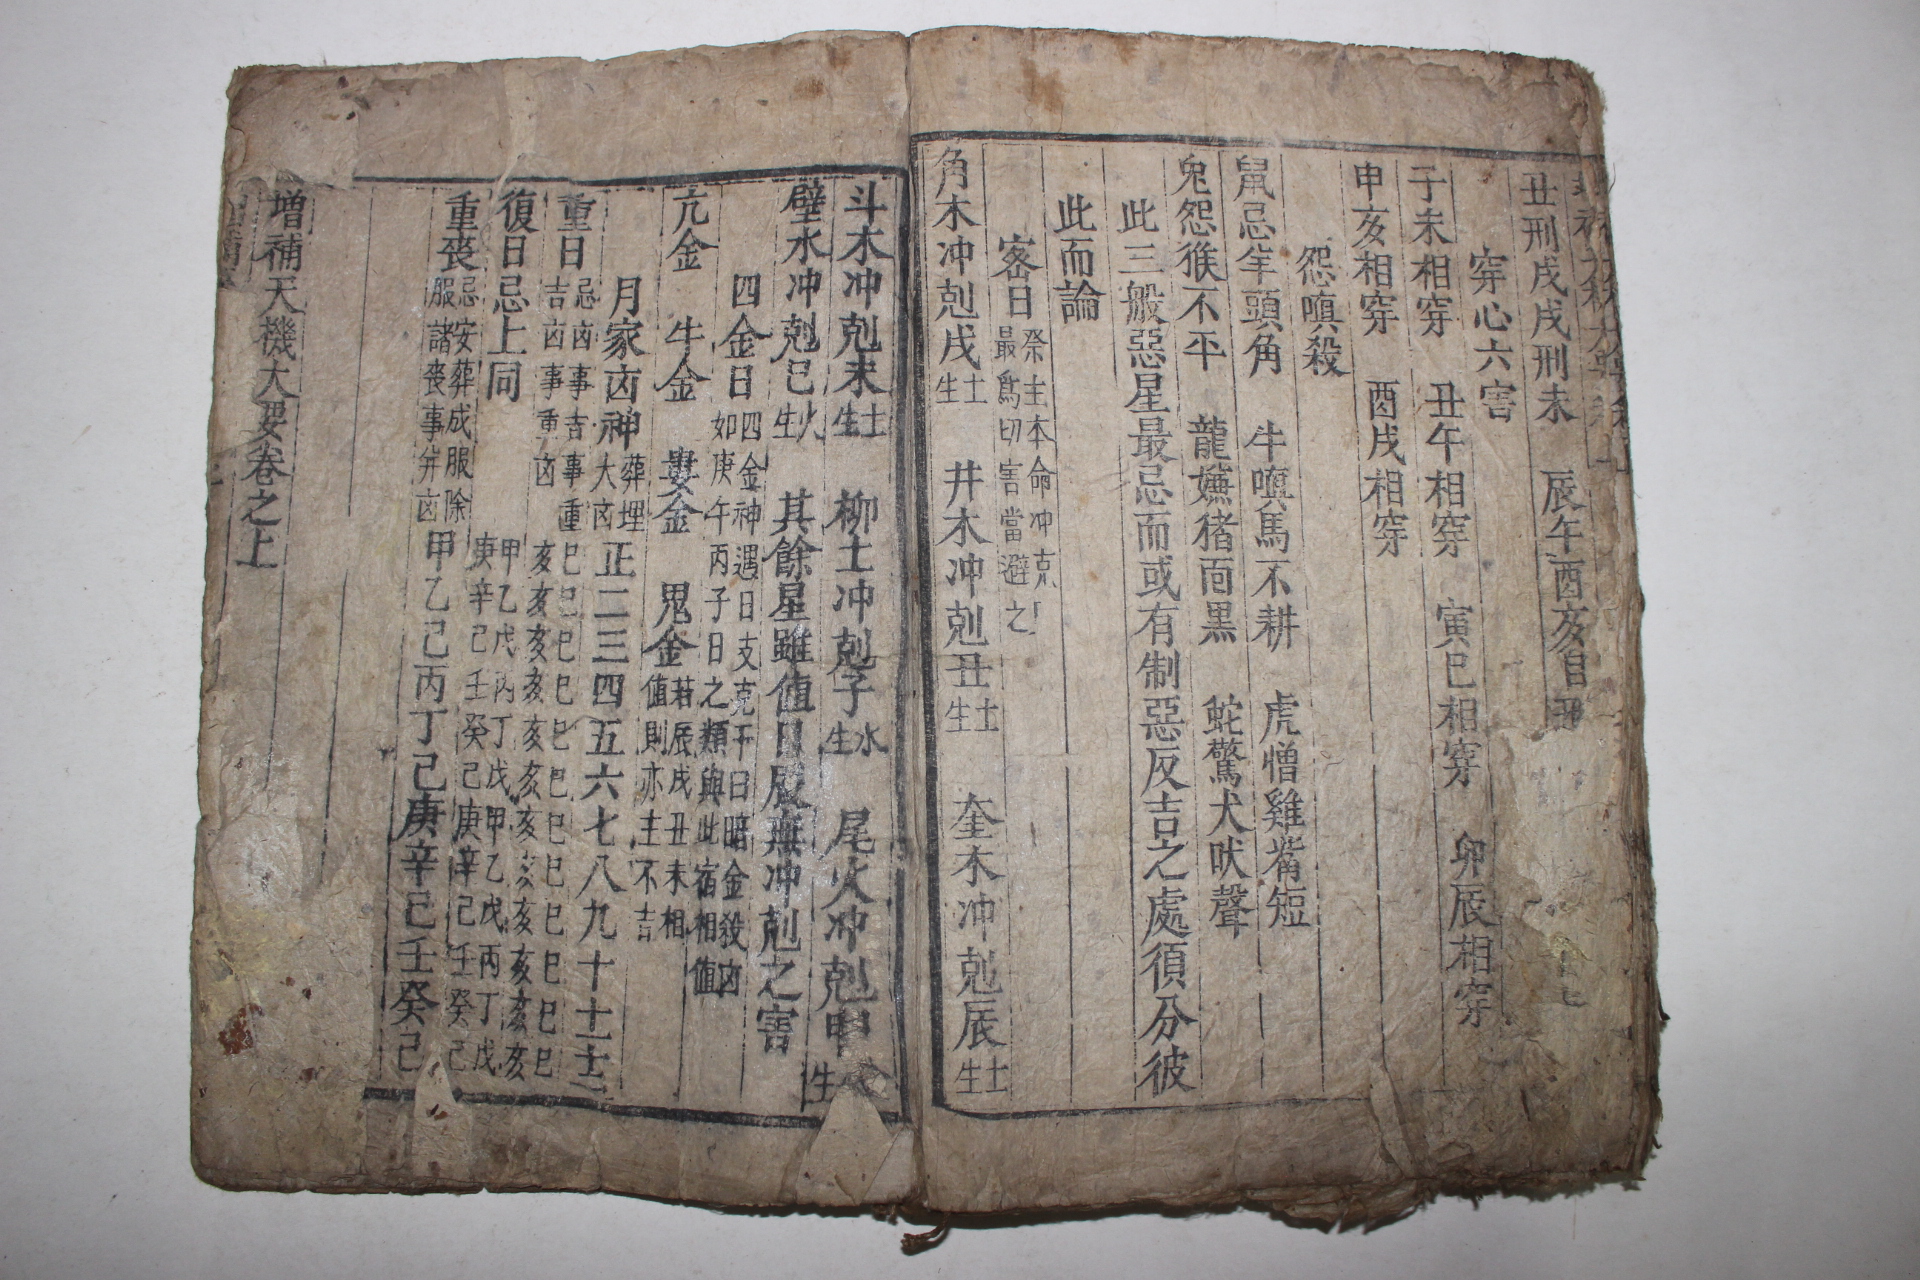 丑刑戌戌刑未　辰午酉亥自刑
穿心六害
子未相穿　丑午相穿　寅巳相穿　卯辰相穿
申亥相穿　酉戌相穿
怨嗔殺
鼠忌羊頭角　牛嗔馬不耕　虎憎雞觜短
兔怨猴不平　龍嫌猪面黑　蛇驚犬吠聲
此三般惡星最忌而或有制惡反吉之處須分彼
此而論
密日祭主本命冲克
最為切害當避之
角木冲剋戌土生　井木冲剋丑土生　奎木冲剋辰土生
斗木冲剋未土生　柳土冲剋子水生　尾火冲剋申金生
壁水冲剋巳火生　其餘星雖値日辰無冲剋之害
四金日四金神遇日支克干曰暗金殺凶
如庚午丙子日之類與此宿相値
亢金　牛金　婁金　鬼金若辰戌丑未相
値則亦主不吉
月家凶神葬埋大凶正二三四五六七八九十十一十二
重日忌凶事吉事重巳巳巳巳巳巳巳巳巳巳巳巳
吉凶事重凶亥亥亥亥亥亥亥亥亥亥亥亥
復日忌上同甲乙戊丙丁戊甲乙戊丙丁戊
庚辛己壬癸己庚辛己壬癸己
重喪忌安葬成服除
服諸喪事并凶甲乙己丙丁己庚辛己壬癸己
增補天機大要卷之上